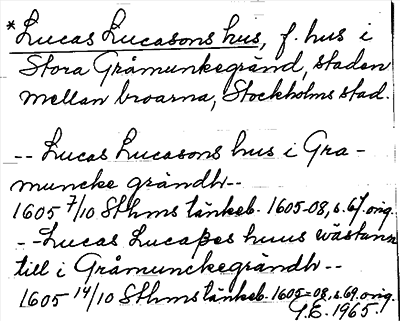 *Lucas Lucasons hus, f. hus i
Stora Gråmunkegränd, staden
mellan broarna, Stockholms stad.
-- Lucas Lucasons hus i Gra-
muncke grändh--
1605 7/10 Sthms tänkeb. 1605-08, s. 67. orig.
--Lucas Lucaßes huus wästann
till i Gråmunckegrändh--
1605 14/10 Sthms tänkeb. 1605-08, s. 69. orig.
G.E. 1965.